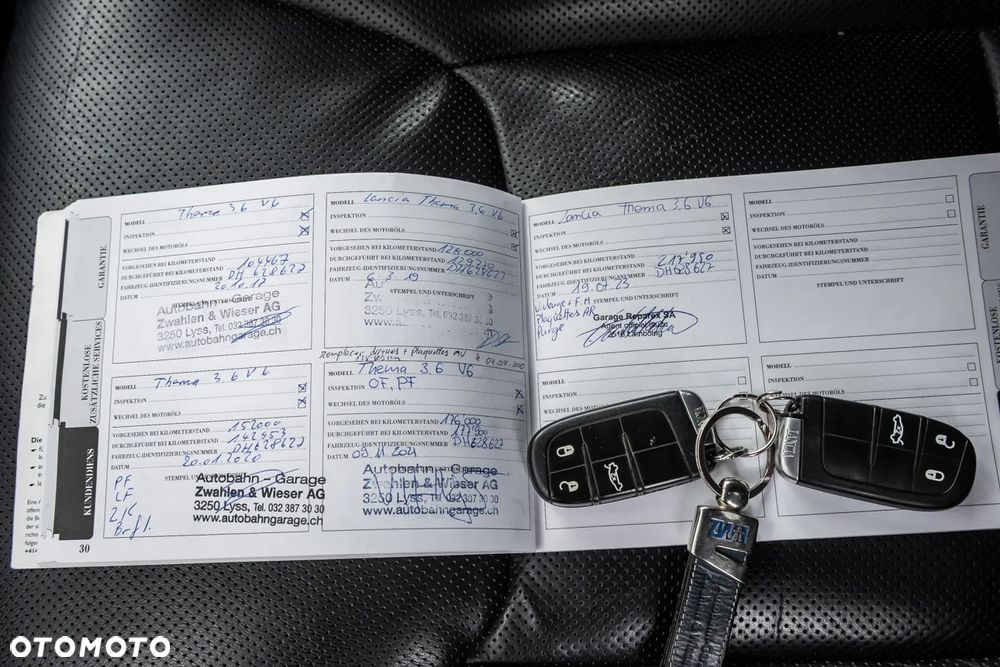 GARANTIE
KOSTENLOSE
ZUSÄTZLICHE SERVICES
KUNDENDIENS
30
MODELL Thema 3.6 V6
INSPEKTION
WECHSEL DES MOTORÖLS
VORGESEHEN BEI KILOMETERSTAND
DURCHGEFÜHRT BEI KILOMETERSTAND 104467
FAHRZEUG-IDENTIFIZIERUNGSNUMMER DH628622
DATUM 20.10.17
Autobahn – Garage
Zwahlen & Wieser AG
3250 Lyss, Tel. 032 387 30 30
www.autobahngarage.ch
MODELL Lancia Thema 3,6 V6
INSPEKTION
WECHSEL DES MOTORÖLS
VORGESEHEN BEI KILOMETERSTAND 128.000
DURCHGEFÜHRT BEI KILOMETERSTAND
FAHRZEUG-IDENTIFIZIERUNGSNUMMER DH628622
DATUM 6.3.19
STEMPEL UND UNTERSCHRIFT
MODELL Thema 3.6 V6
INSPEKTION
WECHSEL DES MOTORÖLS
VORGESEHEN BEI KILOMETERSTAND 152000
DURCHGEFÜHRT BEI KILOMETERSTAND 142453
FAHRZEUG-IDENTIFIZIERUNGSNUMMER DH628622
DATUM 20.01.2020
PF
LF
Autobahn – Garage
Zwahlen & Wieser AG
3250 Lyss, Tel. 032 387 30 30
www.autobahngarage.ch
MODELL Thema 3.6 V6
INSPEKTION OF, PF
WECHSEL DES MOTORÖLS
VORGESEHEN BEI KILOMETERSTAND 176000
DURCHGEFÜHRT BEI KILOMETERSTAND
FAHRZEUG-IDENTIFIZIERUNGSNUMMER DH628622
DATUM 03.11.2021
Autobahn – Garage
Zwahlen & Wieser AG
3250 Lyss, Tel. 032 387 30 30
www.autobahngarage.ch
MODELL Lancia Thema 3.6 V6
INSPEKTION
WECHSEL DES MOTORÖLS
VORGESEHEN BEI KILOMETERSTAND
DURCHGEFÜHRT BEI KILOMETERSTAND 217'950
FAHRZEUG-IDENTIFIZIERUNGSNUMMER DH628622
DATUM 19.07.23
STEMPEL UND UNTERSCHRIFT
Plaquettes AR
Purge
Garage Reparex SA
MODELL
INSPEKTION
WECHSEL DES MOTORÖLS
VORGESEHEN BEI KILOMETERSTAND
DURCHGEFÜHRT BEI KILOMETERSTAND
FAHRZEUG-IDENTIFIZIERUNGSNUMMER
DATUM
STEMPEL UND UNTERSCHRIFT
MODELL
INSPEKTION
MODELL
INSPEKTION
GARANTIE
OTOMOTO